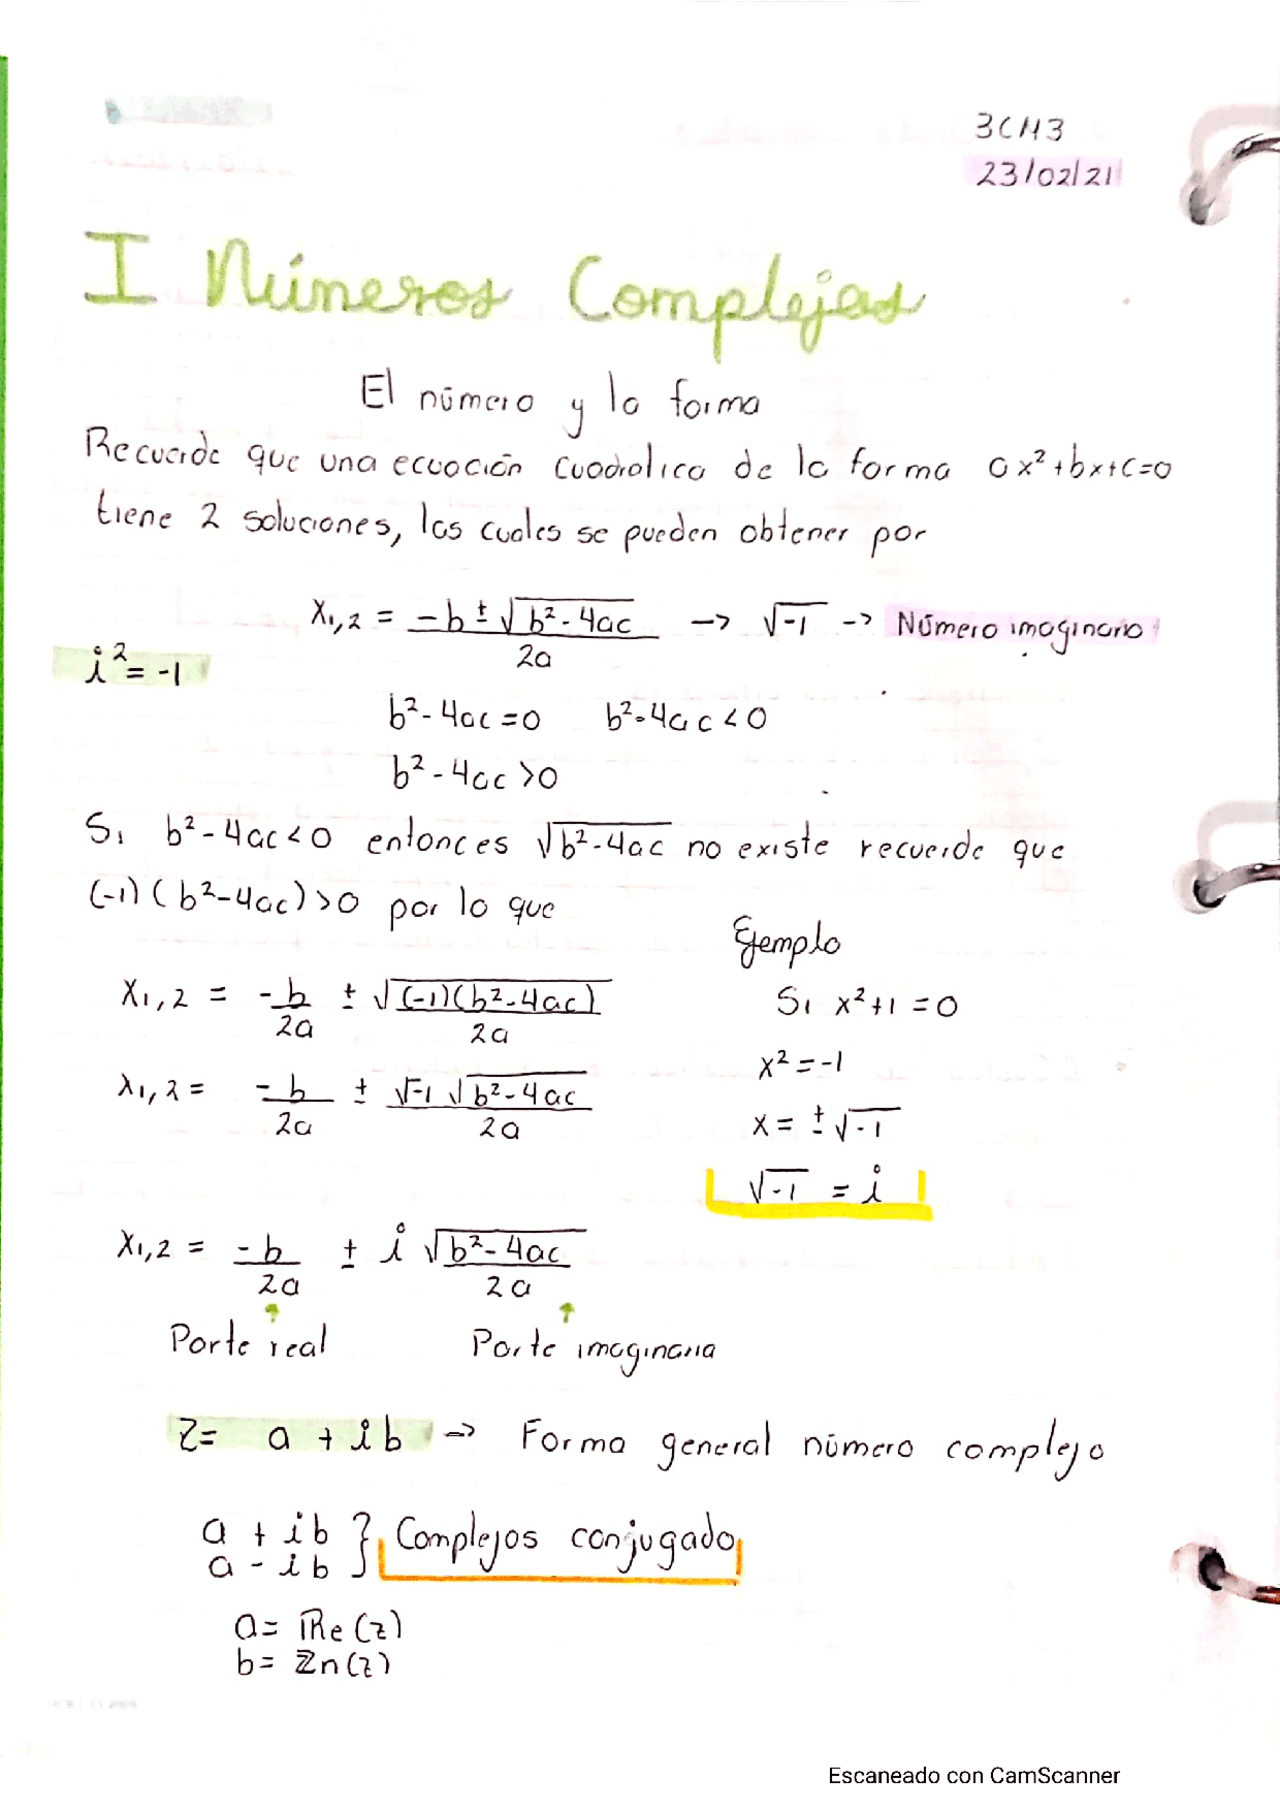 3CM3
23/02/21
I Números Complejos
El número y la forma
Recuerde que una ecuación cuadratica de la forma ax²+bx+c=0
tiene 2 soluciones, las cuales se pueden obtener por
X₁,₂ = -b ± √(b²-4ac) / 2a -> √-1 -> Número imaginario
i² = -1
b²-4ac=0 b²-4ac<0
b²-4ac>0
Si b²-4ac<0 entonces √(b²-4ac) no existe recuerde que
(-1)(b²-4ac)>0 por lo que
Ejemplo
X₁,₂ = -b/2a ± √((-1)(b²-4ac))/2a
Si x²+1=0
x²=-1
X₁,₂ = -b/2a ± √-1 √(b²-4ac)/2a
x= ±√-1
√-1 = i
X₁,₂ = -b/2a ± i √(b²-4ac)/2a
Parte real Parte imaginaria
Z= a + ib -> Forma general número complejo
a + ib } Complejos conjugado
a - ib
a= Re(z)
b= Zn(z)
Escaneado con CamScanner